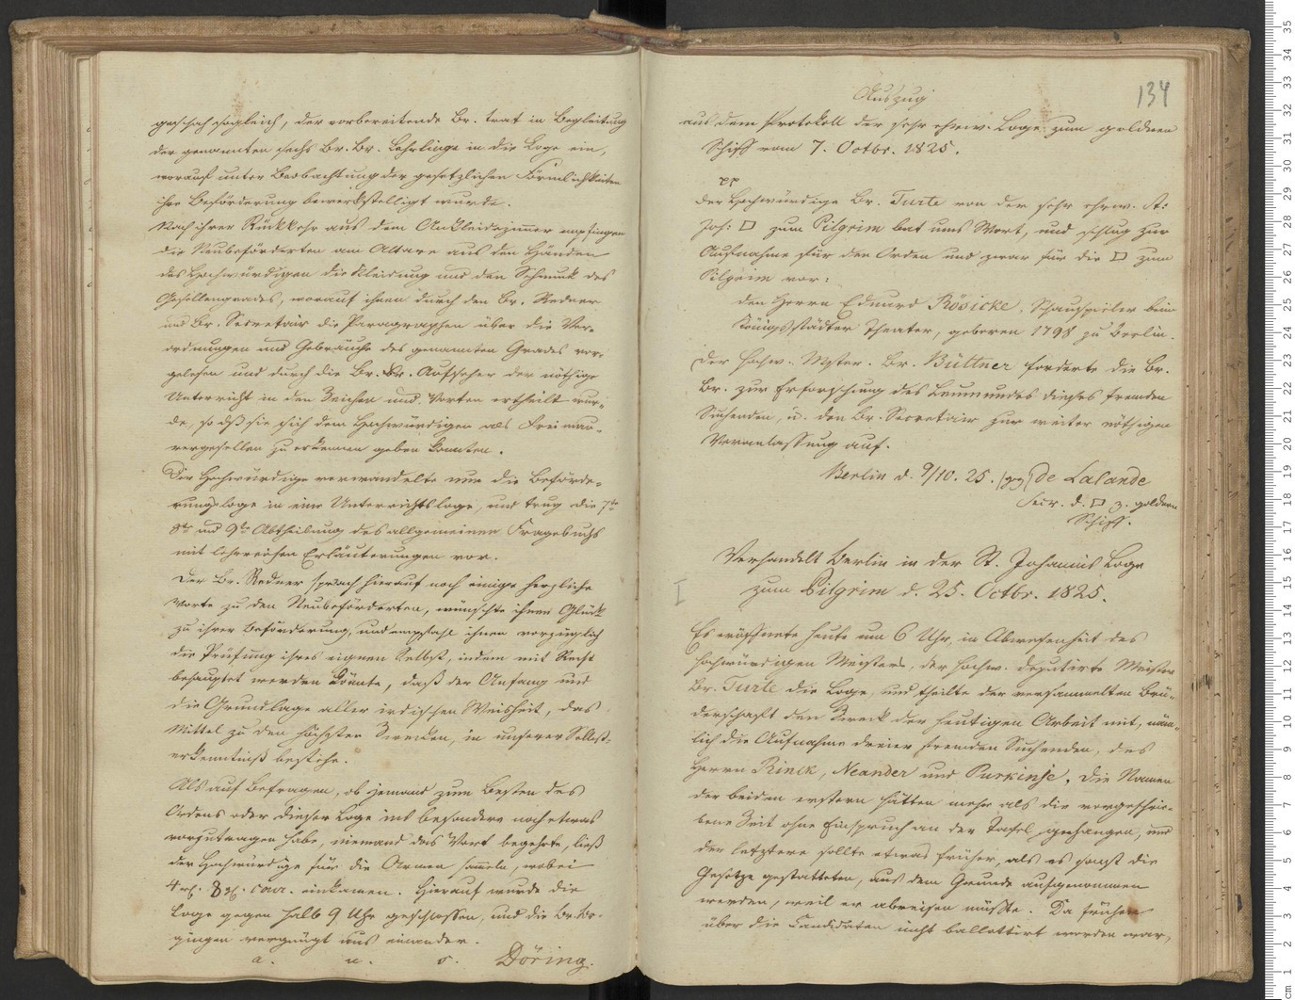 geschah sogleich, der vorbereitende Br. trat in Begleitung
der genannten sechs Br. Br. Lehrlinge in die Loge ein,
worauf unter Beobachtung der gesetzlichen Förmlichkeiten
ihre Beförderung bewerkstelligt wurde.
Nach ihrer Rückkehr aus dem Ankleidezimmer empfingen
die Neubeförderten am Altare aus den Händen
des Hochwürdigen die Kleidung und den Schmuck des
Gesellengrades, worauf ihnen durch den Br. Redner
und Br. Secretair die Paragraphen über die Ver-
ordnungen und Gebräuche des genannten Grades vor-
gelesen und durch die Br. Br. Aufseher der nöthige
Unterricht in den Zeichen und Worten ertheilt wur-
de, so daß sie sich dem Hochwürdigen als Freimau-
rergesellen zu erkennen geben konnten.
Der Hochwürdige verwandelte nun die Beförde-
rungsloge in eine Unterrichtsloge, und trug die 7te
8te und 9te Abtheilung des allgemeinen Fragebuchs
mit lehrreichen Erläuterungen vor.
Der Br. Redner sprach hierauf noch einige herzliche
Worte zu den Neubeförderten, wünschte ihnen Glück
zu ihrer Beförderung, und empfahl ihnen vorzüglich
die Prüfung ihres eignen Selbst, indem mit Recht
behauptet werden könnte, daß der Anfang und
die Grundlage aller irdischen Weisheit, das
Mittel zu den höchsten Zwecken, in unserer Selbst-
erkenntniß bestehe.
Als auf Befragen, ob jemand zum Besten des
Ordens oder dieser Loge ins besondere noch etwas
vorzutragen habe, niemand das Wort begehrte, ließ
der Hochwürdige für die Armen sammeln, wobei
4 rl. 8 gl. cour. einkamen. Hierauf wurde die
Loge gegen halb 9 Uhr geschlossen, und die Br. Br.
gingen vergnügt aus einander.
a. u. s. Döring.
134
Auszug
aus dem Protokoll der sehr ehrw. Loge zum goldnen
Schiff vom 7. Octbr. 1825.
pp
Der Hochwürdige Br. Turte von der sehr ehrw. St:
Joh: □ zum Pilgrim bat ums Wort, und schlug zur
Aufnahme für den Orden und zwar für die □ zum
Pilgrim vor:
den Herrn Eduard Rösicke, Schauspieler beim
Königsstädter Theater, geboren 1798 zu Berlin.
Der Hochw. Mster. Br. Büttner forderte die Br.
Br. zur Erforschung des Leumundes dieses fremden
Suchenden, u. den Br. Secretair zur weiter nöthigen
Veranlassung auf.
Berlin d. 9/10. 25. (gez) de Lalande
Secr. d. □ z. goldnen
Schiff.
Verhandelt Berlin in der St. Johannis Loge
zum Pilgrim d. 25. Octbr. 1825.
Es eröffnete heute um 6 Uhr, in Abwesenheit des
hochwürdigen Meisters, der hochw. deputirte Meister
Br. Turte die Loge, und theilte der versammelten Brü-
derschaft den Zweck der heutigen Arbeit mit, näm-
lich die Aufnahme dreier fremden Suchenden, des
Herrn Rinck, Neander und Purkinje. Die Namen
der beiden erstern hätten mehr als die vorgeschrie-
bene Zeit ohne Einspruch an der Tafel gehangen, und
der letztere sollte etwas früher, als es sonst die
Gesetze gestatteten, aus dem Grunde aufgenommen
werden, weil er abreisen müßte. Da früher
über die Candidaten nicht ballottirt worden war,